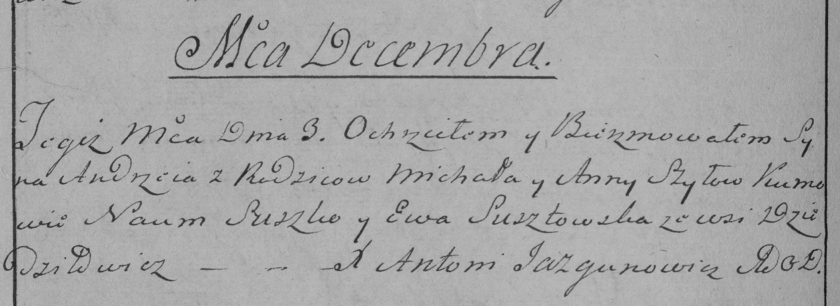 Mca Decembra.
Tegiż Mca Dnia 3. Ochrzciłem y Bierzmowałem Sy
na Andrzeia z Rodzicow Michała y Anny Szyłow Kumo
wie Naum Suszko y Ewa Susztowska ze wsi Dzie
Dziłowicz — - - X Antoni Jazgunowicz